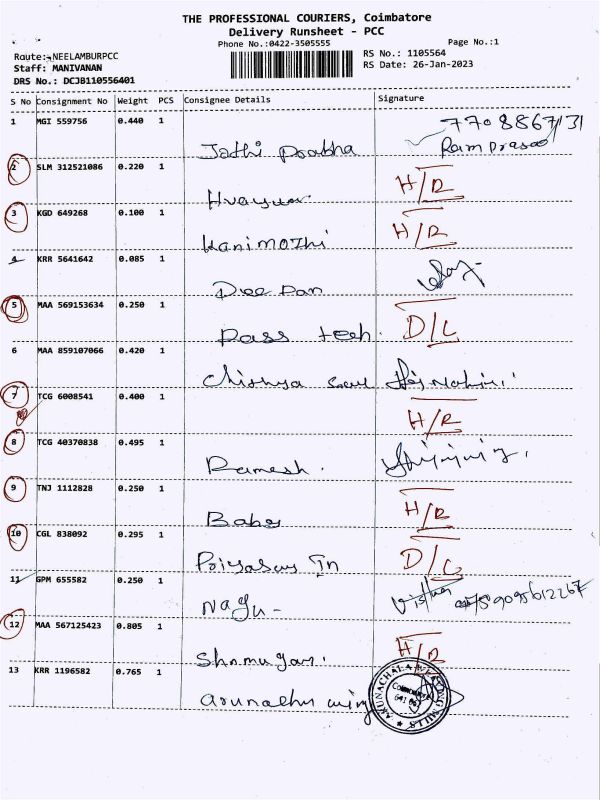 THE PROFESSIONAL COURIERS, Coimbatore
Delivery Runsheet - PCC
Phone No.:0422-3505555
Page No.:1
Route: NEELAMBURPCC
Staff: MANIVANAN
DRS No.: DCJB110556401
RS No.: 1105564
RS Date: 26-Jan-2023
S No Consignment No Weight PCS Consignee Details Signature
1 MGI 559756 0.440 1
Jothi Prabha
Ram prasad
2 SLM 312521086 0.220 1
H/R
3 KGD 649268 0.100 1
Kanimozhi H/R
4 KRR 5641642 0.085 1
Dee pan
5 MAA 569153634 0.250 1
Pass tech. D/L
6 MAA 859107066 0.420 1
7 TCG 6008541 0.400 1
H/R
8 TCG 40370838 0.495 1
Ramesh.
9 TNJ 1112828 0.250 1
Babu H/R
10 CGL 838092 0.295 1
D/L
11 GPM 655582 0.250 1
Nagu -
12 MAA 567125423 0.805 1
Shnmugam. H/R
13 KRR 1196582 0.765 1